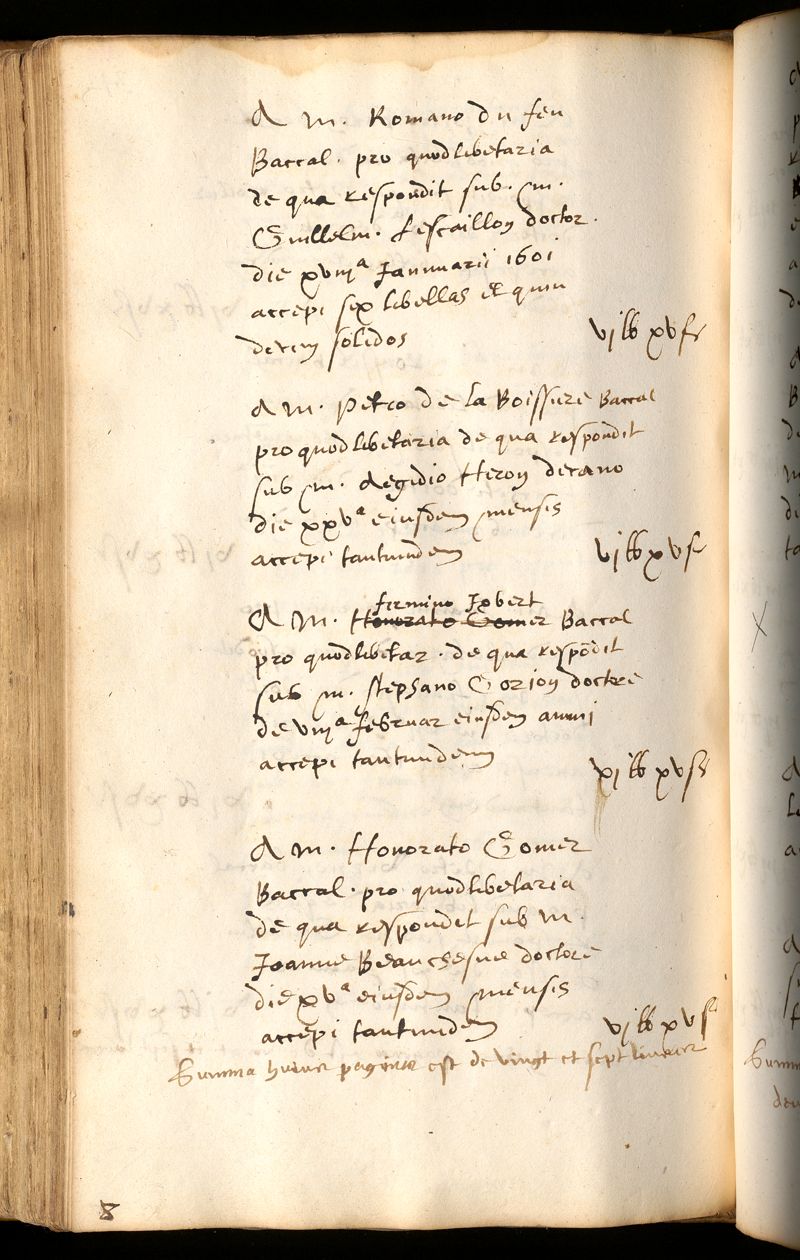 A m. Romano du feu
Baccal. pro quodlibetaria
de qua respondit sub. m.
Guillelm. Lescaillon doctor.
die xviij^a Januuarii 1601
accepi sex libellas et quin
decim solidos
vj lb xv s
A m. Petro de la Boissiere Baccal
pro quodlibetaria de qua respondit
sub m. Aegidio Heron decano
die xxv^a eiusdem mensis
accepi tantundem
vj lb xv s
firmino Jobert
A m. Honorato Gomer Baccal
pro quodlibetar. de qua respōdit
sub m. stephano Gorion doctore
de viij^a februar eiusdem anni
accepi tantundem
xj lb xv s
A m. Honorato Gomer
Baccal. pro quodlibetaria
de qua respondit sub m.
Joanne Beauchesne doctore
die xv^a eiusdem mensis
accepi tantundem
vj lb xv s
Summa huius paginae est de vingt et sept livres
8